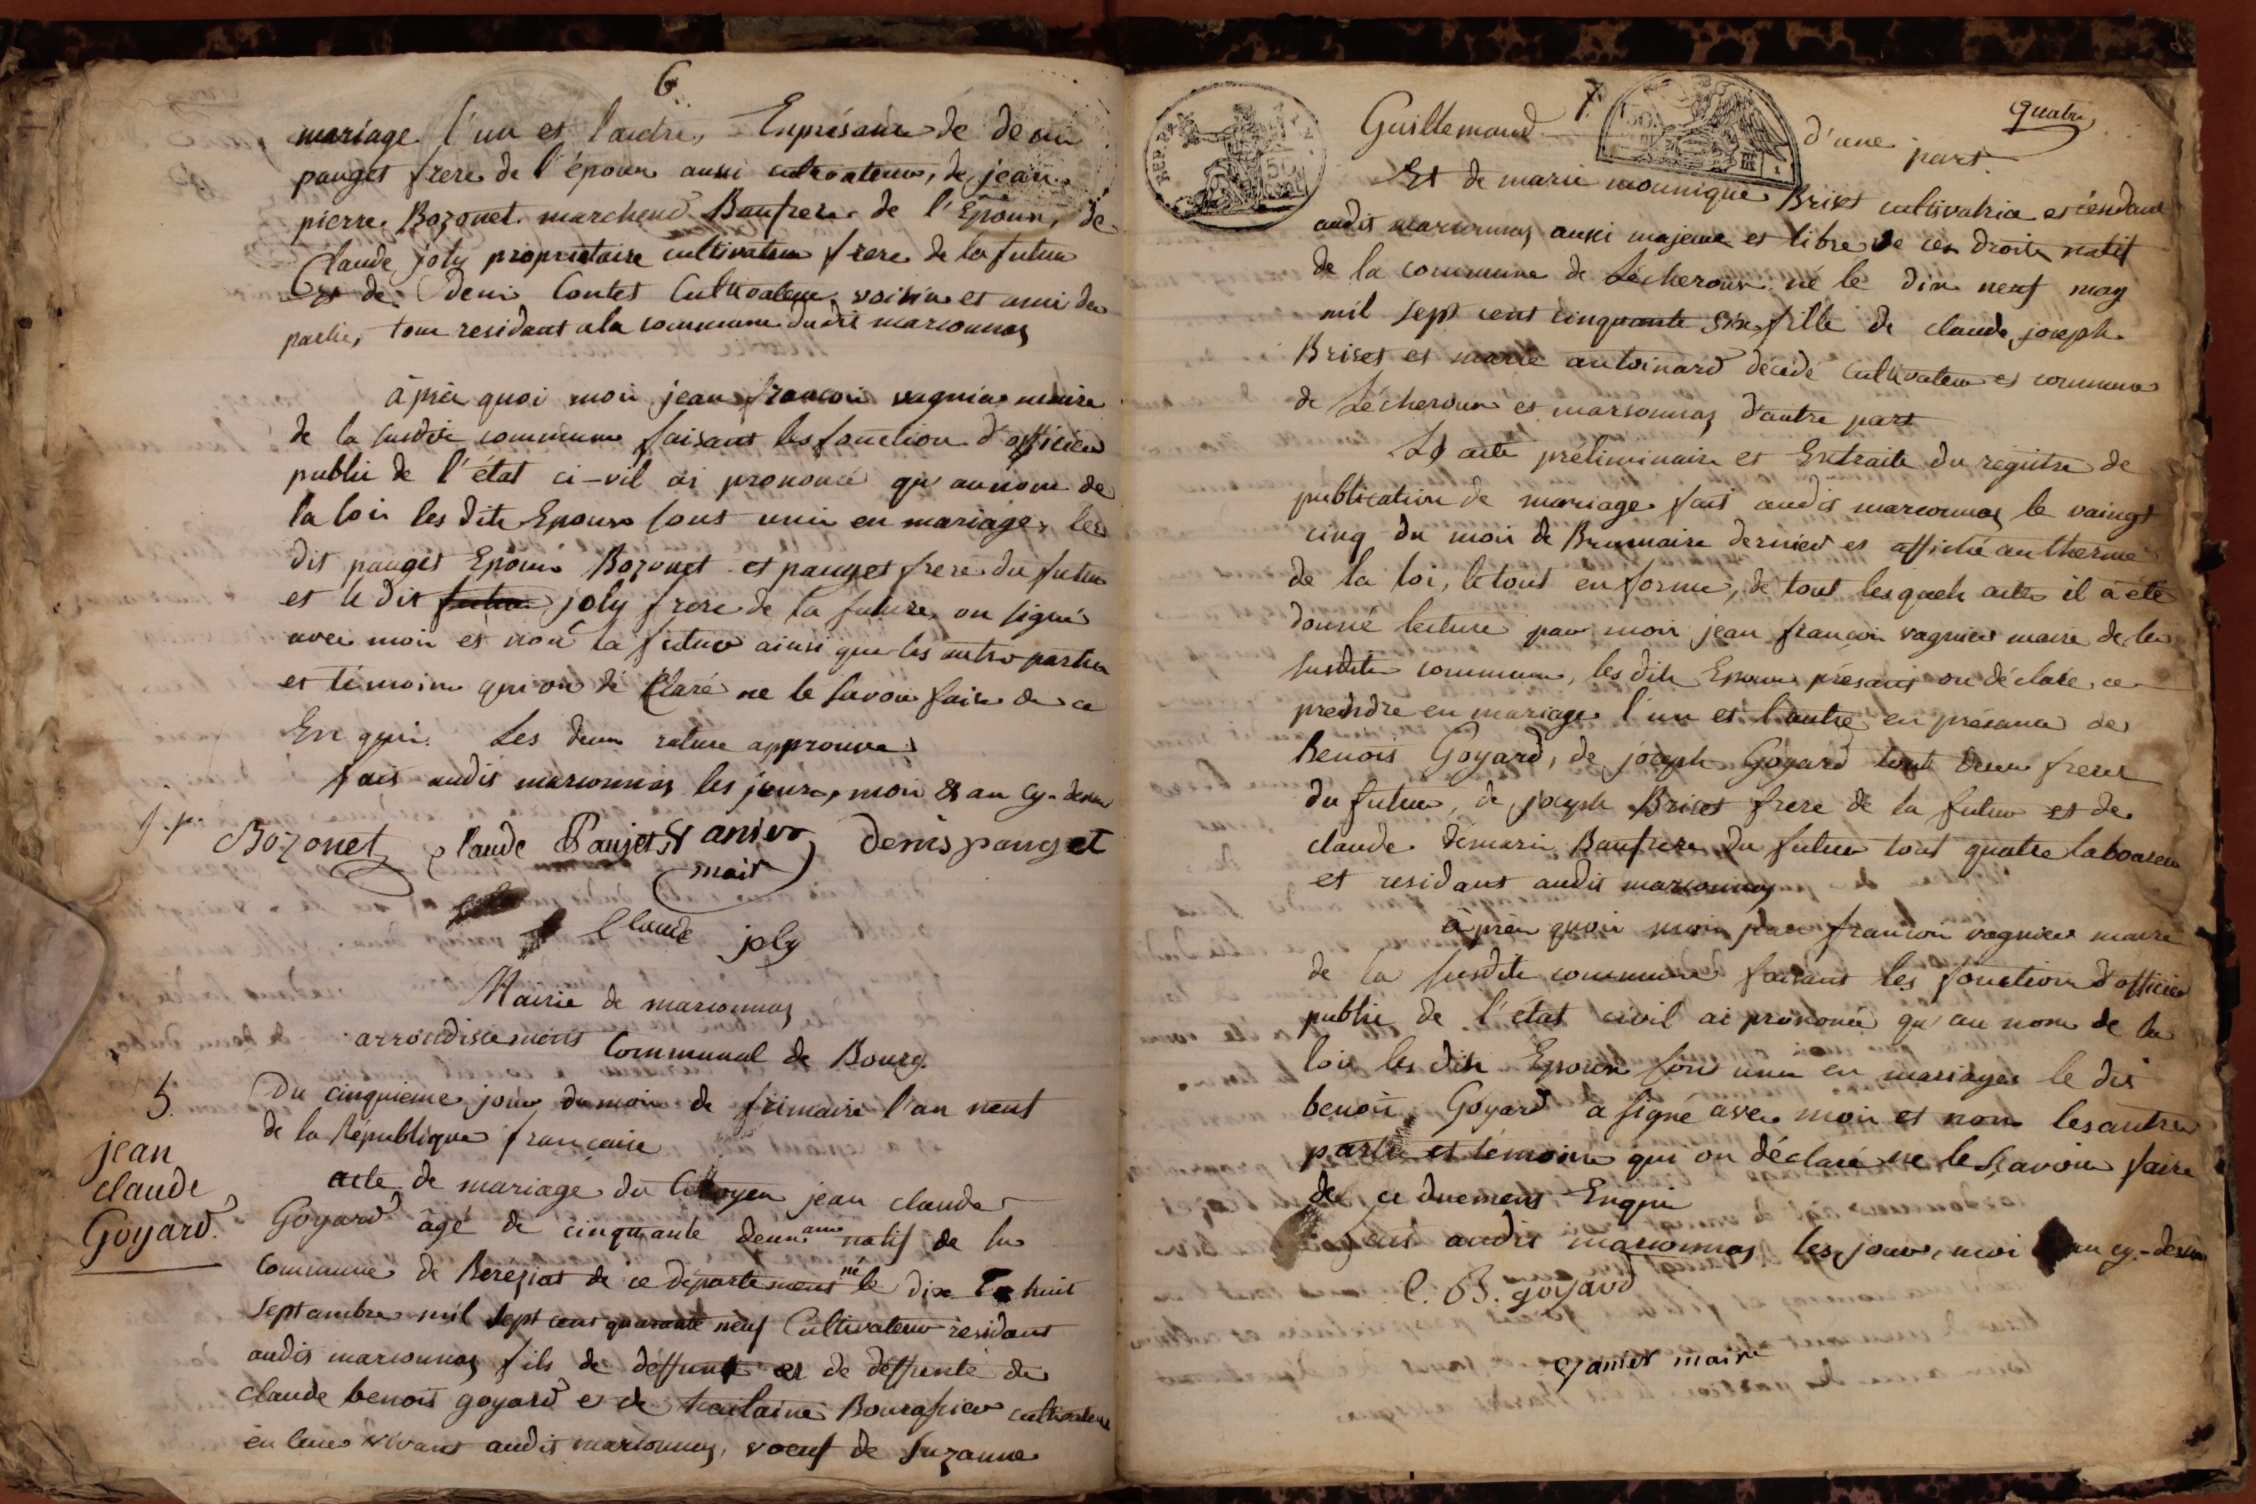 6
mariage l'un et l'autre, Enprésance de deni
pauget frere de l'époux aussi cultivateur, de jean
pierre Bozonet marchend Baufrere de l'Epoux, de
Claude joly proprietaire cultivateur frere de la future
et de deni Contet Cultivateur voisin et ami des
partie, tous residant a la commune dudit marsonnas
àprèe quoi moi jean françoi vagnier maire
de la susdite commune faisant les fonction d'officier
public de l'état ci-vil ai prononcé qu'aunom de
la loi les dits Epoux sont unis en mariage, les
dit pauget Epoux Bozonet et pauget frere du futur
et le dit futur joly frere de la future on signé
avec moi et non la futur ainsi que les autre partie
et témoins qui on dé Claré ne le savoir faire de ce
Enquis. Les deux rature approuvé
fait audit marsonnas les jour, moi et an cy-dessu
j. p.
Bozonet Claude Paujet Vanier denis pauget
mair
Claude joly
Mairie de marsonnas
arrondissement Communal de Bourg.
5.
jean
claude
Goyard.
Du cinquieme jour du moi de frimaire l'an neuf
de la République française
acte de mariage du Citoyen jean claude
Goyard âgé de cinquante deux ans natif de la
Commune de Beréziat de ce département né le dix huit
septambre mil sept cent quarante neuf Cultivateur résidant
audit marsonnas fils de deffunt et de deffunte de
claude benoit goyard e de Bourgfier cultivateur
en leur vivant audit marsonnas, voeuf de Suzanne
quatre
7.
Guillemaud d'une part
Et de marie mounique Briset cultivatrice et résidant
audit marsonnas aussi majeure et libre de ces droits natif
de la commune de Lécheroux né le dix neuf may
mil sept cent cinquante six fille de claude joseph
Briset et marie antoinard décédé Cultivateur et commune
de Lécheroux et marsonnas d'autre part
Ls acte préliminaire et Extraite du registre de
publication de mariage fait audit marsonnas le vaingt
cinq du moi de Brumaire dernier et affiché au therme
de la loi, le tout en forme, de tout lesquels acte il à été
donné lecture par moi jean françoi vagnier maire de la
susdite commune, les dits Epoux présant on déclaré ce
prendre en mariage l'un et l'autre en présance de
Benoit Goyard, de joseph Goyard tout deux freres
du futur, de joseph Briset frere de la futur et de
claude démarie Baufrere du futur tout quatre laboureur
et residant audit marsonnas
àprèe quoi moi jean françoi vagnier maire
de la susdite commune faisant les fonction d'officier
public de l'état civil ai prononcé qu'au nom de la
loi les dits Epoux son unis en mariages le dit
benoit Goyard a signé avec moi et non les autre
partie et témoins qui on déclaré ne le sçavoir faire
de ce duement Enquis
fait audit marsonnas les jour, moi an cy-dessu
C. B. goyard
Vanier maire